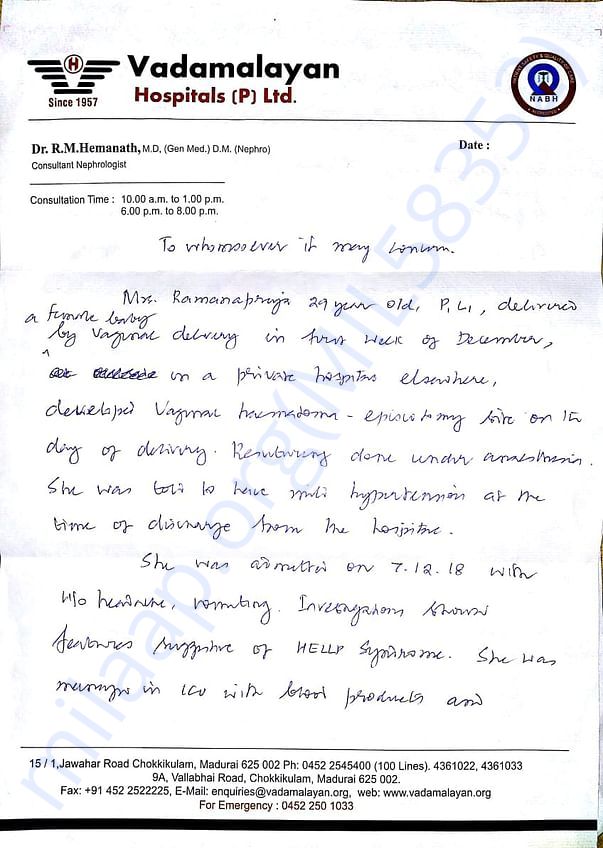 Vadamalayan
Hospitals (P) Ltd.
Since 1957
NABH
Dr. R.M.Hemanath, M.D, (Gen Med.) D.M. (Nephro)
Date :
Consultant Nephrologist
Consultation Time : 10.00 a.m. to 1.00 p.m.
6.00 p.m. to 8.00 p.m.
To whomsoever it may concern.
Mrs. Ramanapriya 29 year old, P1L1, delivered
a female baby
by vaginal delivery in first week of December,
in a private hospital elsewhere,
developed vaginal haematoma - episiotomy site on the
day of delivery. Resuturing done under anaesthesia.
She was told to have mild hypertension at the
time of discharge from the hospital.
She was admitted on 7.12.18 with
H/o headache, vomiting. Investigations showed
features suggestive of HELLP Syndrome. She was
managed in ICU with blood products and
15 / 1,Jawahar Road Chokkikulam, Madurai 625 002 Ph: 0452 2545400 (100 Lines). 4361022, 4361033
9A, Vallabhai Road, Chokkikulam, Madurai 625 002.
Fax: +91 452 2522225, E-Mail: enquiries@vadamalayan.org, web: www.vadamalayan.org
For Emergency : 0452 250 1033